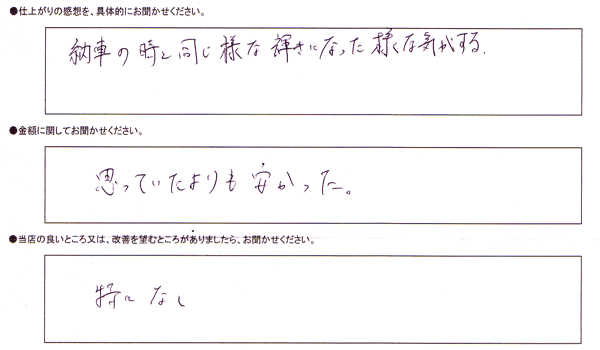 ●仕上がりの感想を、具体的にお聞かせください。
納車の時と同じ様な輝きになった様な気がする.
●金額に関してお聞かせください。
思っていたよりも安かった。
●当店の良いところ又は、改善を望むところがありましたら、お聞かせください。
特になし